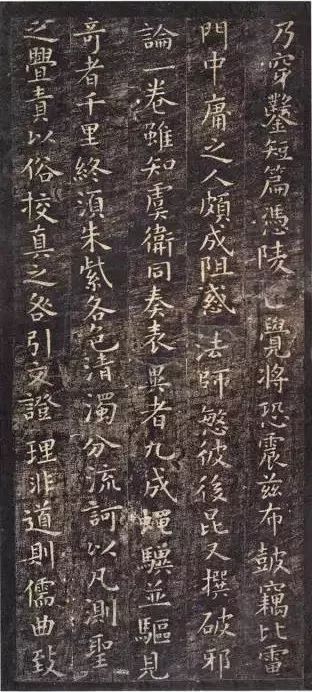 乃穿鑿短篇憑陵覺將恐震茲布皷竊比雷
門中庸之人頗成阻惑 法師愍彼後昆又撰破邪
論一卷雖知虞衛同奏表異者九成蠅驥並驅見
奇者千里終湏朱紫各色清濁分流訶以凡測聖
之舋責以俗挍真之咎引文證理非道則儒曲致